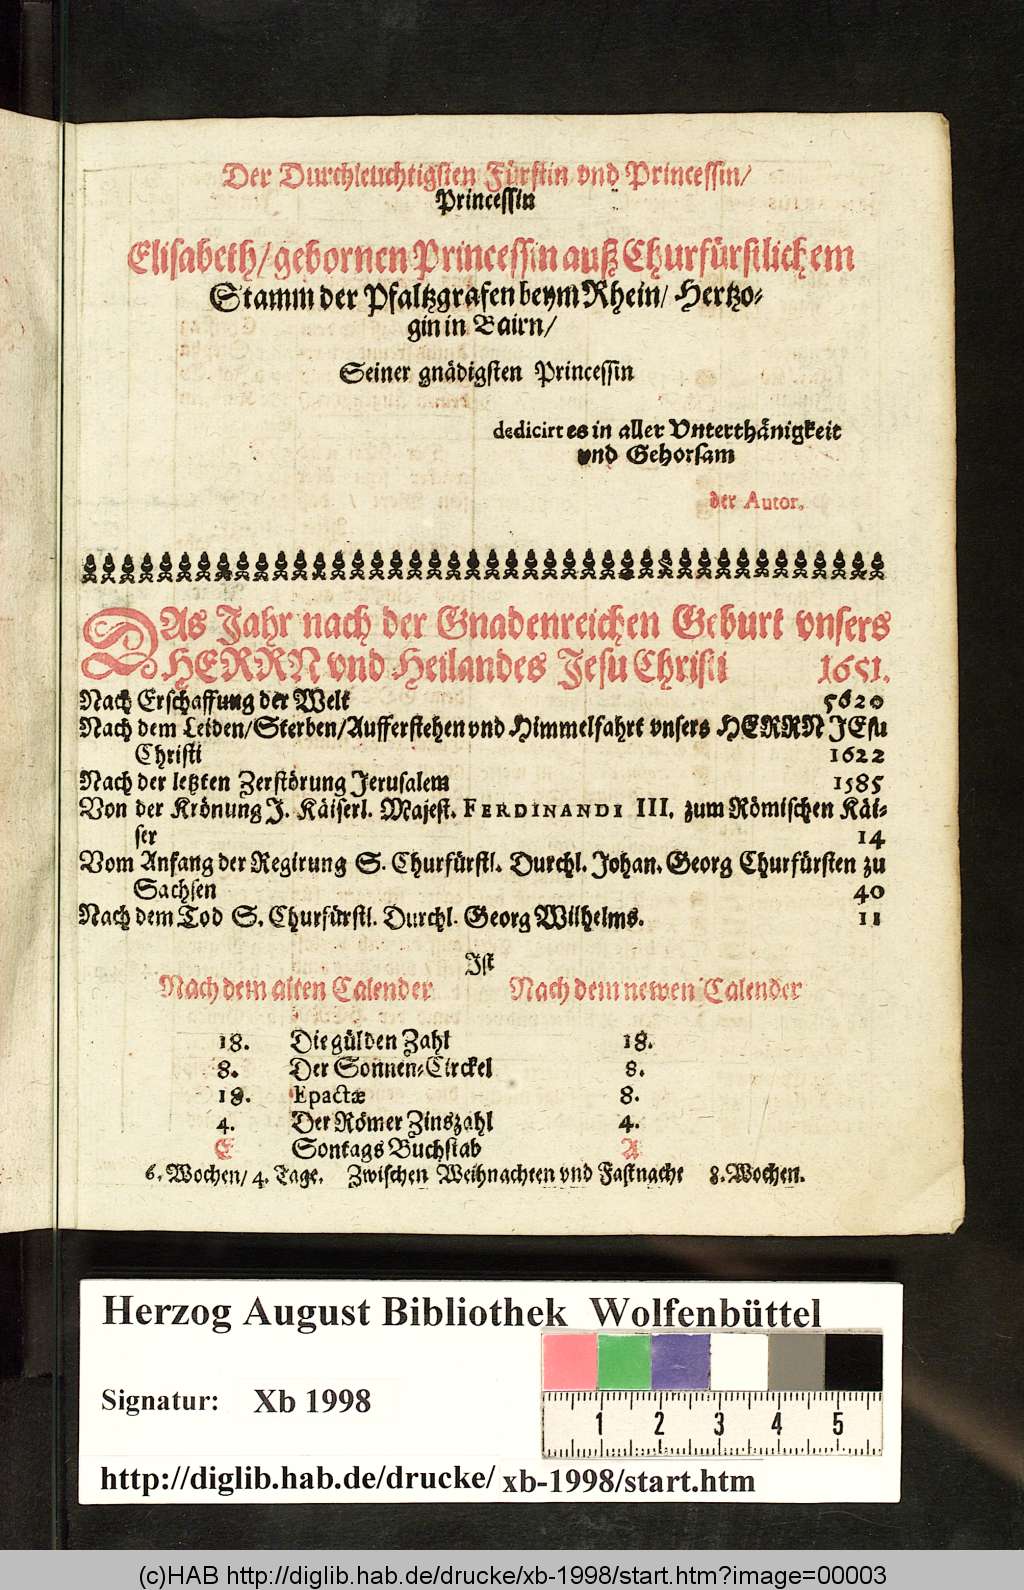 Der Durchleuchtigsten Fürstin vnd Princessin/
Princessin
Elisabeth/ gebornen Princessin auß Churfürstlichem
Stamm der Pfaltzgrafen beym Rhein/ Hertzo-
gin in Bairn/
Seiner gnädigsten Princessin
dedicirt es in aller Vnterthänigkeit
vnd Gehorsam
der Autor.
DAs Jahr nach der Gnadenreichen Geburt vnsers
HERRN vnd Heilandes Jesu Christi 1651.
Nach Erschaffung der Welt 5620
Nach dem Leiden/Sterben/Aufferstehen vnd Himmelfahrt vnsers HERRN JEsu
Christi 1622
Nach der letzten Zerstörung Jerusalem 1585
Von der Krönung J. Käiserl. Majest. FERDINANDI III. zum Römischen Käi-
ser 14
Vom Anfang der Regirung S. Churfürstl. Durchl. Johan. Georg Churfürsten zu
Sachsen 40
Nach dem Tod S. Churfürstl. Durchl. Georg Wilhelms. 11
Ist
Nach dem alten Calender Nach dem newen Calender
18. Die gülden Zahl 18.
8. Der Sonnen-Circkel 8.
18. Epactæ 8.
4. Der Römer Zinszahl 4.
E Sontags Buchstab A
6. Wochen/ 4. Tage. Zwischen Weihnachten vnd Fastnacht 8. Wochen.
Herzog August Bibliothek Wolfenbüttel
Signatur: Xb 1998
1 2 3 4 5
http://diglib.hab.de/drucke/ xb-1998/start.htm
(c)HAB http://diglib.hab.de/drucke/xb-1998/start.htm?image=00003